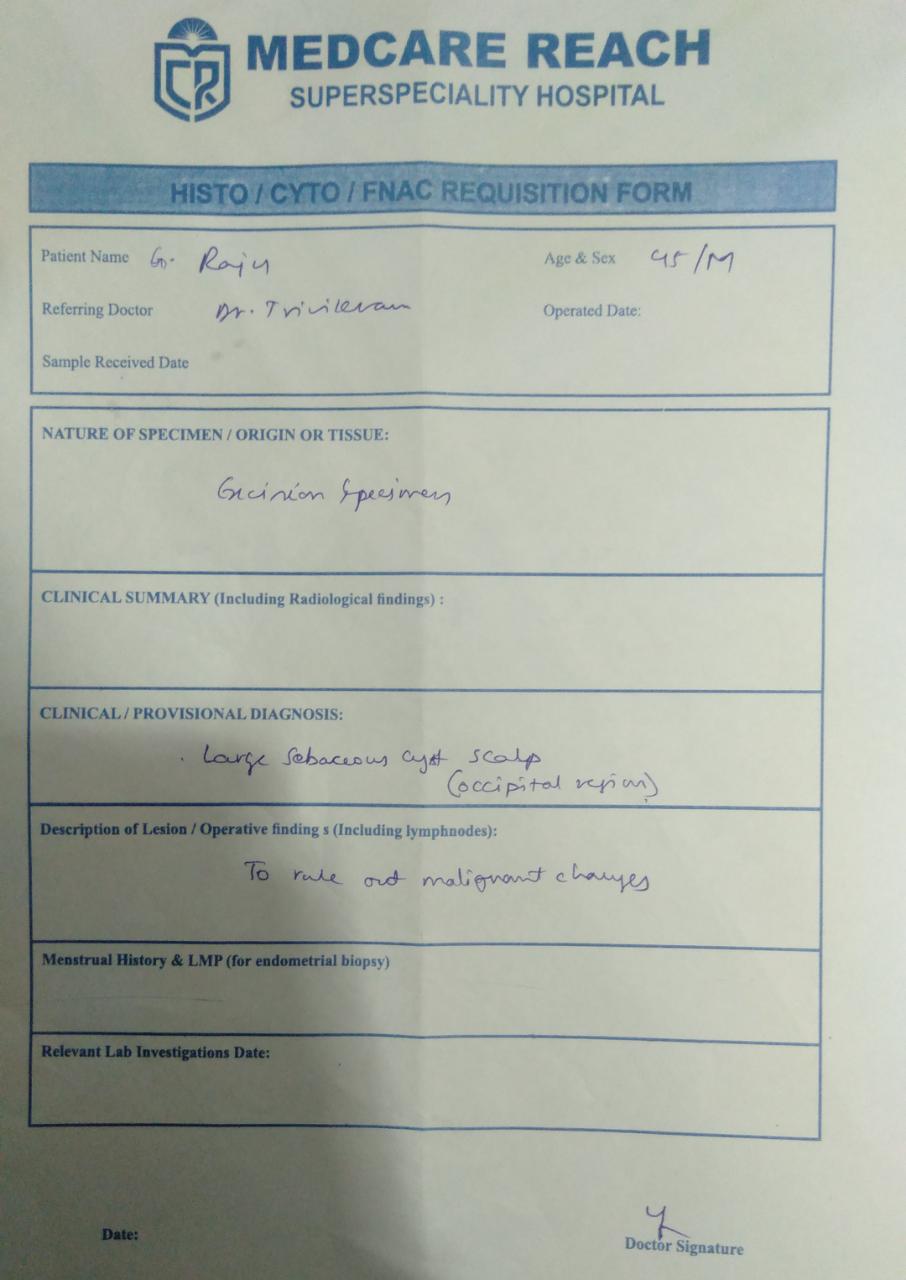 MEDCARE REACH
SUPERSPECIALITY HOSPITAL
HISTO / CYTO / FNAC REQUISITION FORM
Patient Name G. Raju Age & Sex 45/M
Referring Doctor Dr. Trivikram Operated Date:
Sample Received Date
NATURE OF SPECIMEN / ORIGIN OR TISSUE:
Excision Specimen
CLINICAL SUMMARY (Including Radiological findings) :
CLINICAL / PROVISIONAL DIAGNOSIS:
Large Sebaceous cyst scalp
(occipital region)
Description of Lesion / Operative finding s (Including lymphnodes):
To rule out malignant changes
Menstrual History & LMP (for endometrial biopsy)
Relevant Lab Investigations Date:
Date:
Doctor Signature